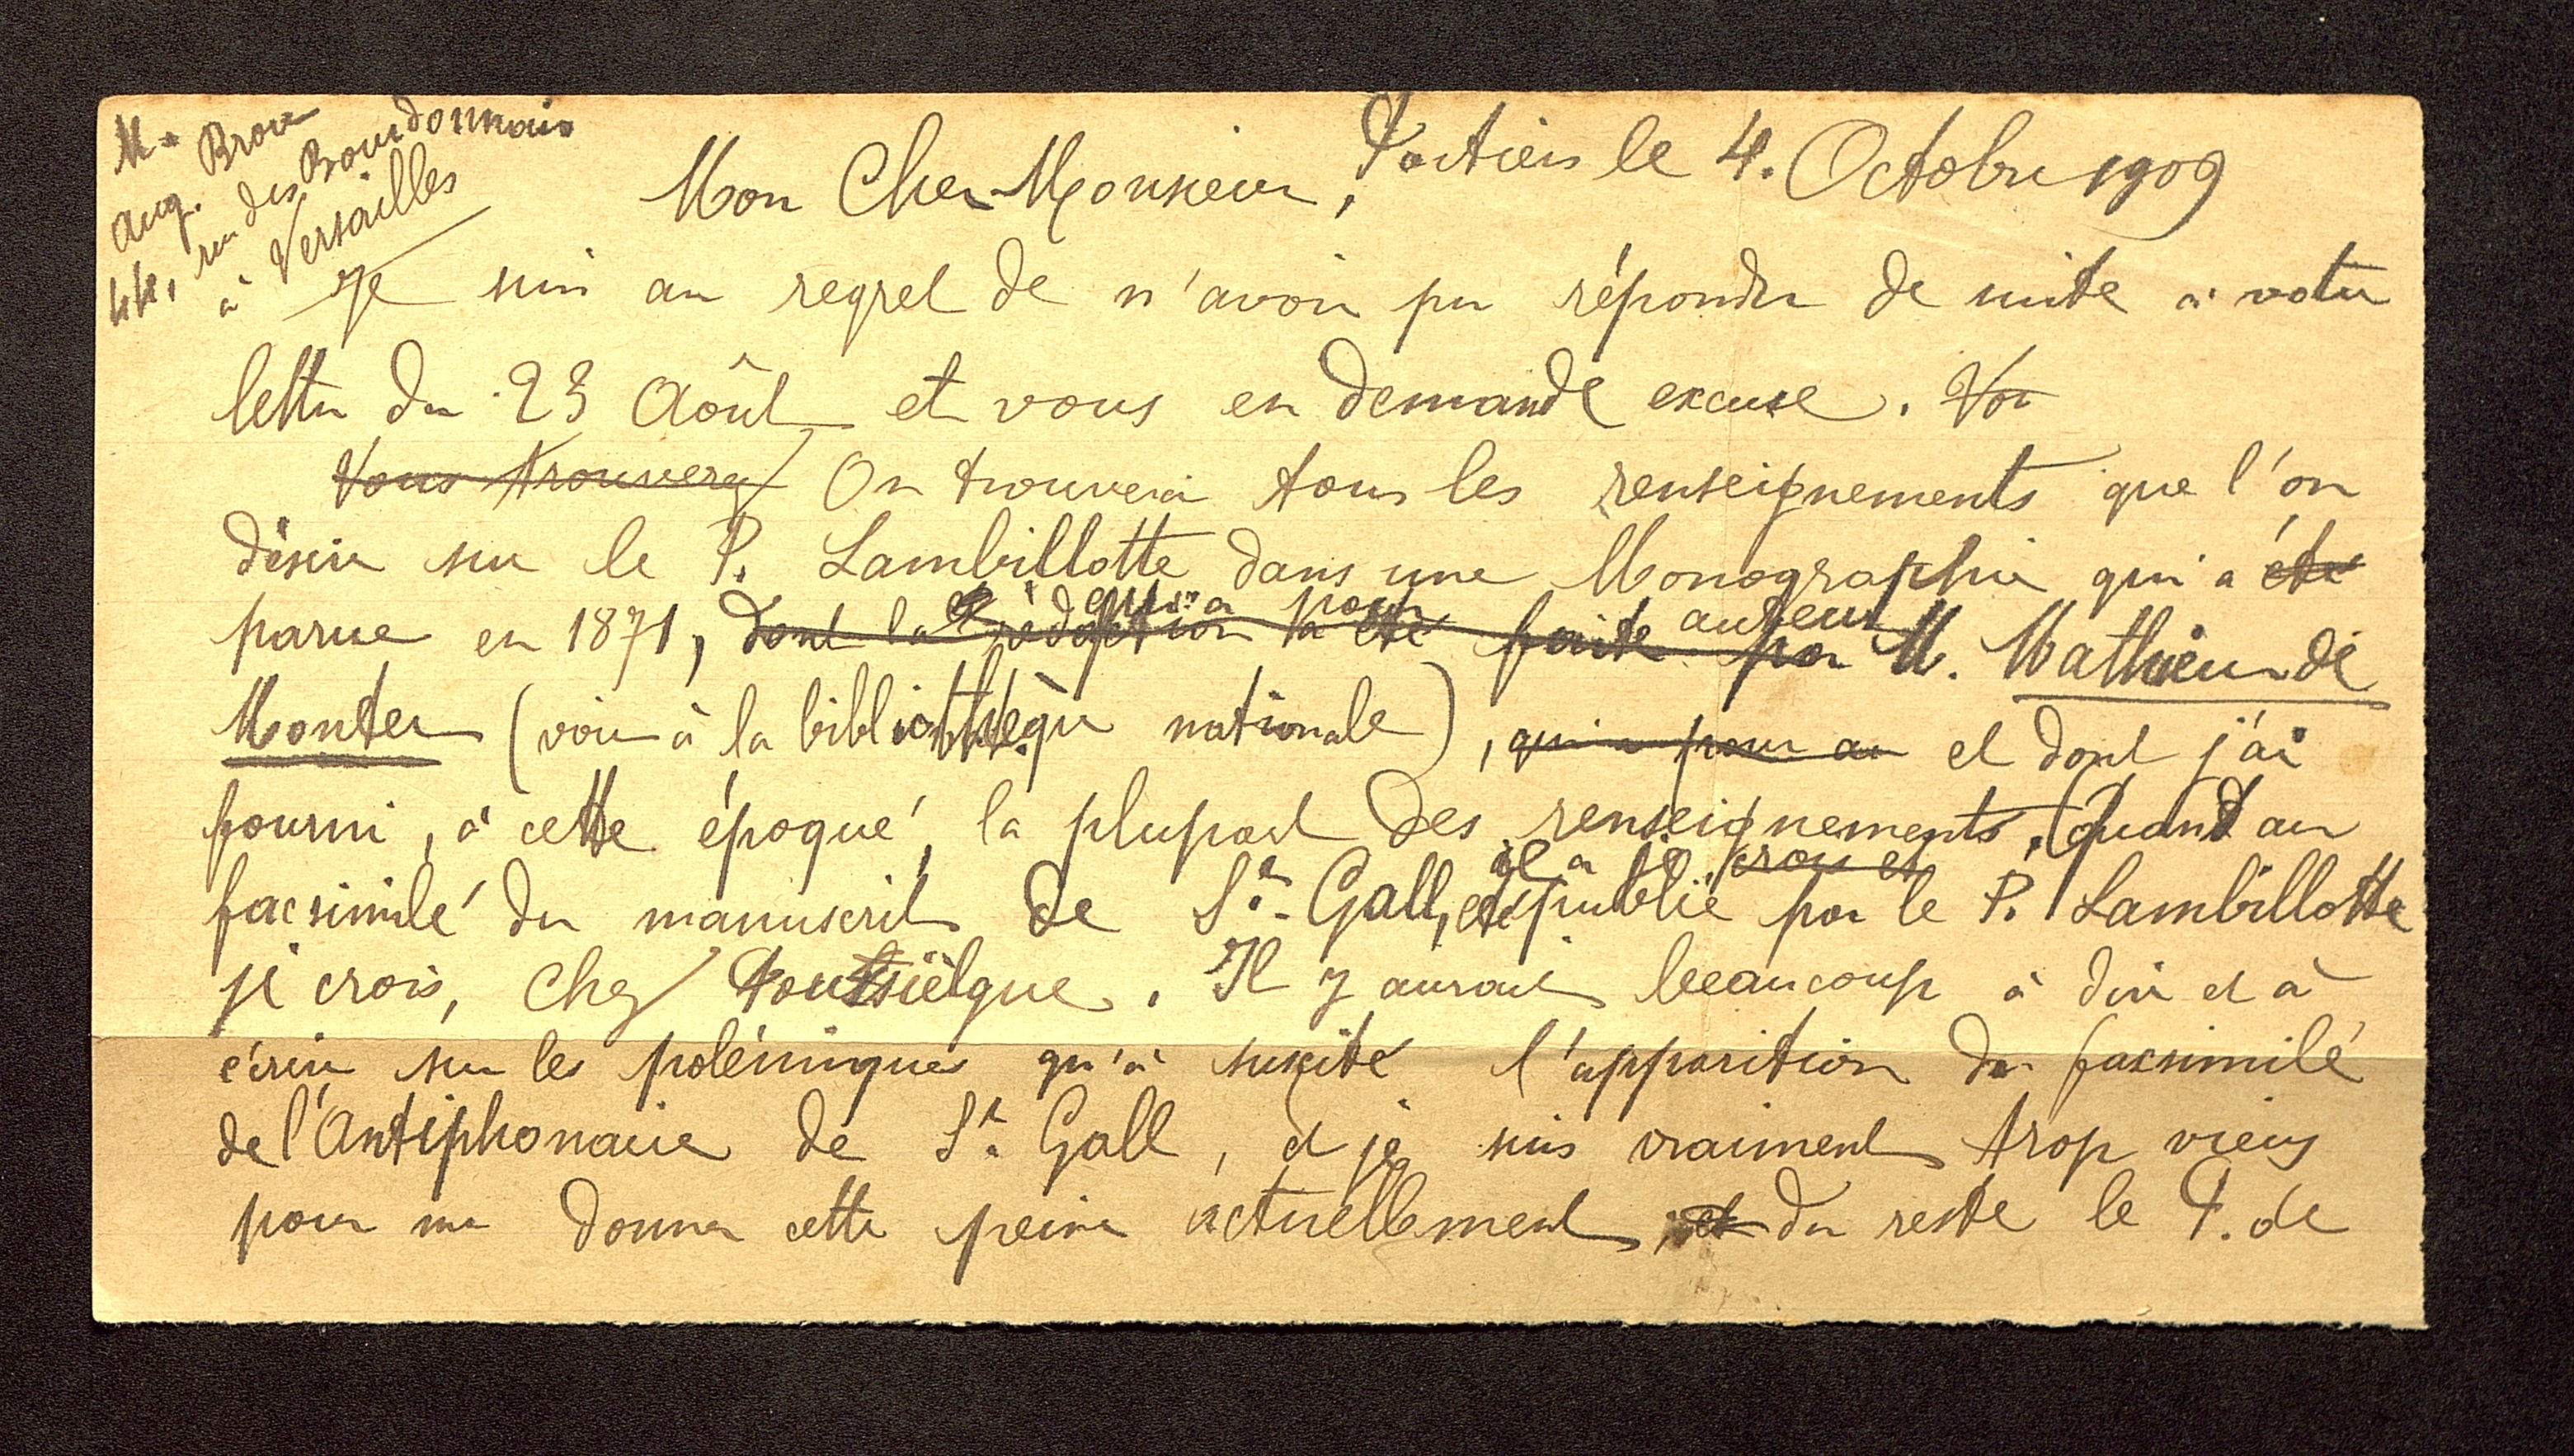 Mr Brou
Aug.
44, rue des Bourdonnais
à Versailles
Poitiers le 4. Octobre 1909
Mon Cher Monsieur,
Je suis au regret de n'avoir pu répondre de suite à votre
lettre du 23 Août et vous en demande excuse. Vou
Vous trouverez On trouvera tous les renseignements que l'on
désire sur le P. Lambillotte dans une Monographie qui a été
parue en 1871, dont la rédaction a été faite par et qui a pour auteur M. Mathieu de
Monter (voir à la bibliothèque nationale), qui a pour au et dont j'ai
fourni, à cette époque, la plupart des renseignements. Quand au
facsimilé du manuscrit de St. Gall, il a été publié par le P. Lambillotte
je crois, chez Poussielgue. Il y aurait beaucoup à dire et à
écrire sur les polémiques qu'a suscité l'apparition du facsimilé
de l'Antiphonaire de St. Gall, et je suis vraiment trop vieux
pour me donner cette peine actuellement, et du reste le P. de